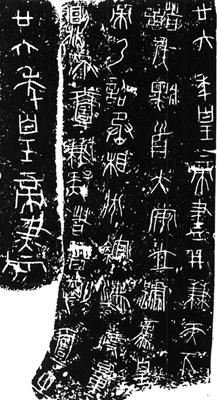 廿六年皇帝盡并兼天下
諸侯黔首大安立號為皇
帝乃詔丞相狀綰法度量
則不壹歉疑者皆明壹之
廿六年皇帝盡并